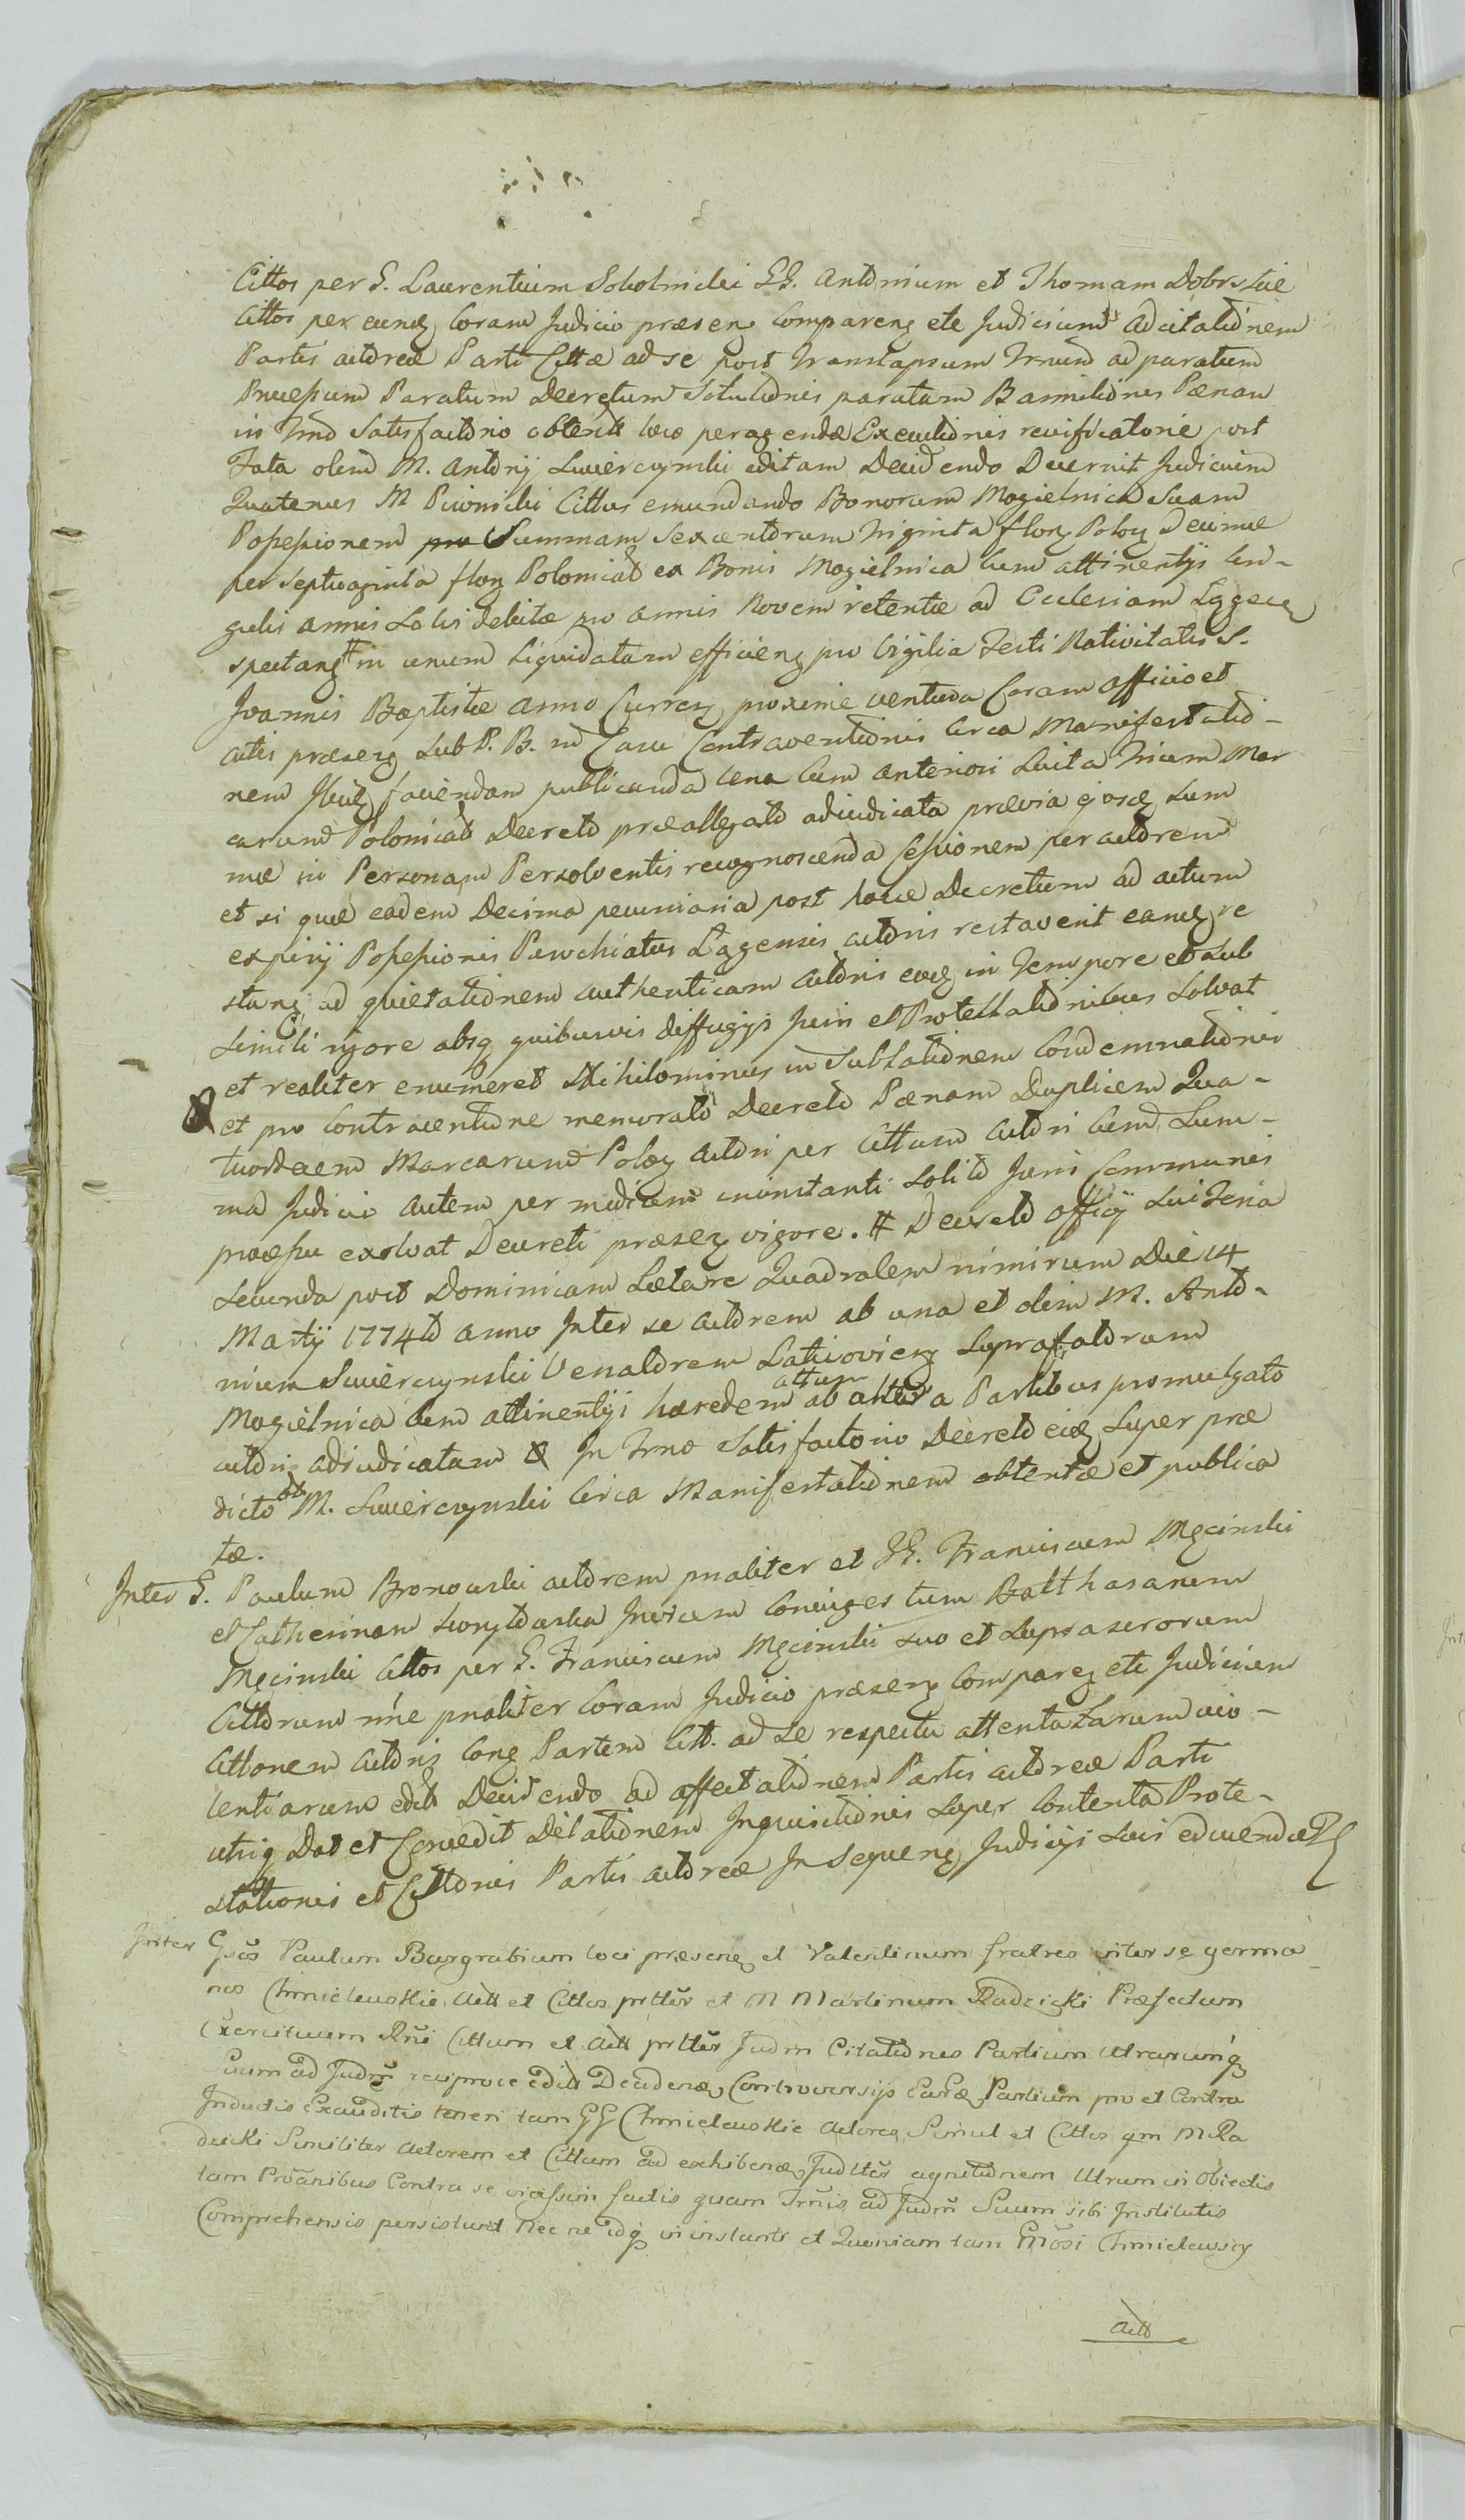 Cittos per G. Laurentium Sokolnicki GG. Antonium et Thomam Dobrskie
Cittos per eundq Coram Judicio præsenz Comparenz etc Judicium ad citationem
Partis actoreæ Parti Cittæ ad se post translapsum Trnum ad paratum
Paratum Decretum Solutionis paratam Bannitionis Pænam
in Trno Satisfactorio obtent loco peragendæ Executionis reuificatorie post
Fata olim M. Antonij Swierczynski editam Decidendo Decernit Judicium
Quatenus M Piwnicki Cittus emundando Bonorum Mogielnica Suam
Possessionem Summam Sexcentorum triginta florz Poloz Decimæ
per septuaginta florz Polonical ex Bonis Mogielnica Cum attinentijs Sin-
gulis annis Solis debitæ pro annis Novem retentæ ad Ecclesiam
spectanz in unum Liquidatam efficienz pro Vigilia Festi Nativitatis S.
Joannis Baptistæ anno Currenz proxime ventura Coram officio et
actis præsenz Sub P. B. in Casu Contraventionis Circa Manifestatio-
nem Ibidq faciendam publicanda Una Cum anteriori Luita trium Mar
carum Polonical Decreto præallegato adiudicata prævia ejoscq Sum
mæ in Personam Persolventis recognoscenda Cessionem per actorem
et si quæ eadem Decima pecuniaria post hocce Decretum ad actum
expirij Possessionis Parochiatus Lagensis actoris restaverit eamq re
stanz ad quietationem authenticam actoris eoq in Tempore et Sub
Simili rigore absq quibusvis diffugijs Juris et Protestationibus Solvat
et realiter enumeret Nihilominus in Sublationem Condemnationis
et pro Contraventione memorato Decreto Pænam Duplicem Qua-
tuordecem Marcarum Poloz actori per Cittum actori Cum Sum-
ma Judicio autem per medium in instanti Solito Juris Communis
processu exolvat Decreti præsenz vigore. # Decreto officij Sui Feria
Secunda post Dominicam Lætare Quadralem nimirum Die 14
Martij 1774to anno Inter se actorem ab una et olim M. Anto-
nium Swierczynski Venatorem Suprafatorum
Mogielnica Cum attinentijs hæredem attum ab altera Partibus promulgato
actori adiudicatam In Trno Satisfactorio Decreto eidq Super præ
dicto ol M. Swierczynski Circa Manifestationem obtentæ et publica
tæ.
Inter G. Paulum Bronowski actorem pnaliter et GG. Franciscum Męcinski
et Catherinam Invicem Coniuges tum Balthasarum
Męcinski Cittos per G. Franciscum Męcinski suo et Suprascrorum
Cittorum nie pnaliter Coram Judicio præsenz Comparenz etc Judicium
Cittonem actoris Conz Partem Citt. ad se respectu attentatarum vio-
lentiarum edit Decidendo ad affectationem Partis actoreæ Parti
utriq Dat et Concedit Delationem Inquisitionis Super Contenta Prote-
stationis et Cittonis Partis actoreæ In Sequenz Judicijs Suis educendæ
Inter Gsos Paulum Burgrabium loci præsenz et Valentinum fratres inter se germa
nos Chmielewskie Actt et Cittos prtter et M Martinum Radzicki Præfectum
Exercituum Rni Cittum et Actt prtter Judm Citationes Partium Utrarumq
Suum ad Judm reciproce edit Decidenz Controversijs Earq Partium pro et Contra
Inductis Exauditis teneri tam GG Chmielewskie Actores Simul et Cittos qm M Ra
dzicki Similiter Actorem et Cittum ad exhibenz Judlter agnitionem Utrum in Obiectis
tam Proanibus Contra se vicissim factis quam Trnis ad Judm Suum sibi Institutis
Comprehensis persistunt nec ne idq in instanti et Quoniam tam Gnosi Chmielewscy
Actt